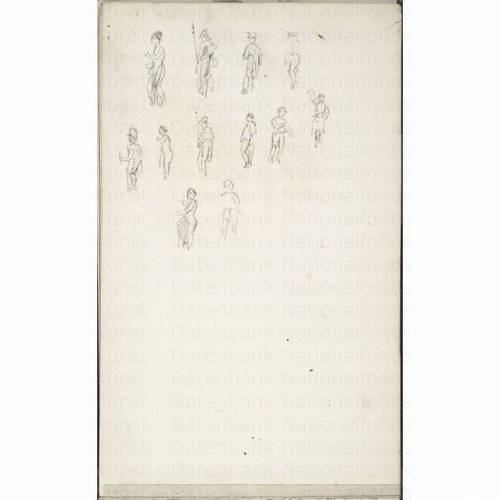 Kunst - Datenbank Nationalfonds
Kunst - Datenbank Nationalfonds
Kunst - Datenbank Nationalfonds
Kunst - Datenbank Nationalfonds
Kunst - Datenbank Nationalfonds
Kunst - Datenbank Nationalfonds
Kunst - Datenbank Nationalfonds
Kunst - Datenbank Nationalfonds
Kunst - Datenbank Nationalfonds
Kunst - Datenbank Nationalfonds
Kunst - Datenbank Nationalfonds
Kunst - Datenbank Nationalfonds
Kunst - Datenbank Nationalfonds
Kunst - Datenbank Nationalfonds
Kunst - Datenbank Nationalfonds
Kunst - Datenbank Nationalfonds
Kunst - Datenbank Nationalfonds
Kunst - Datenbank Nationalfonds
Kunst - Datenbank Nationalfonds
Kunst - Datenbank Nationalfonds
Kunst - Datenbank Nationalfonds